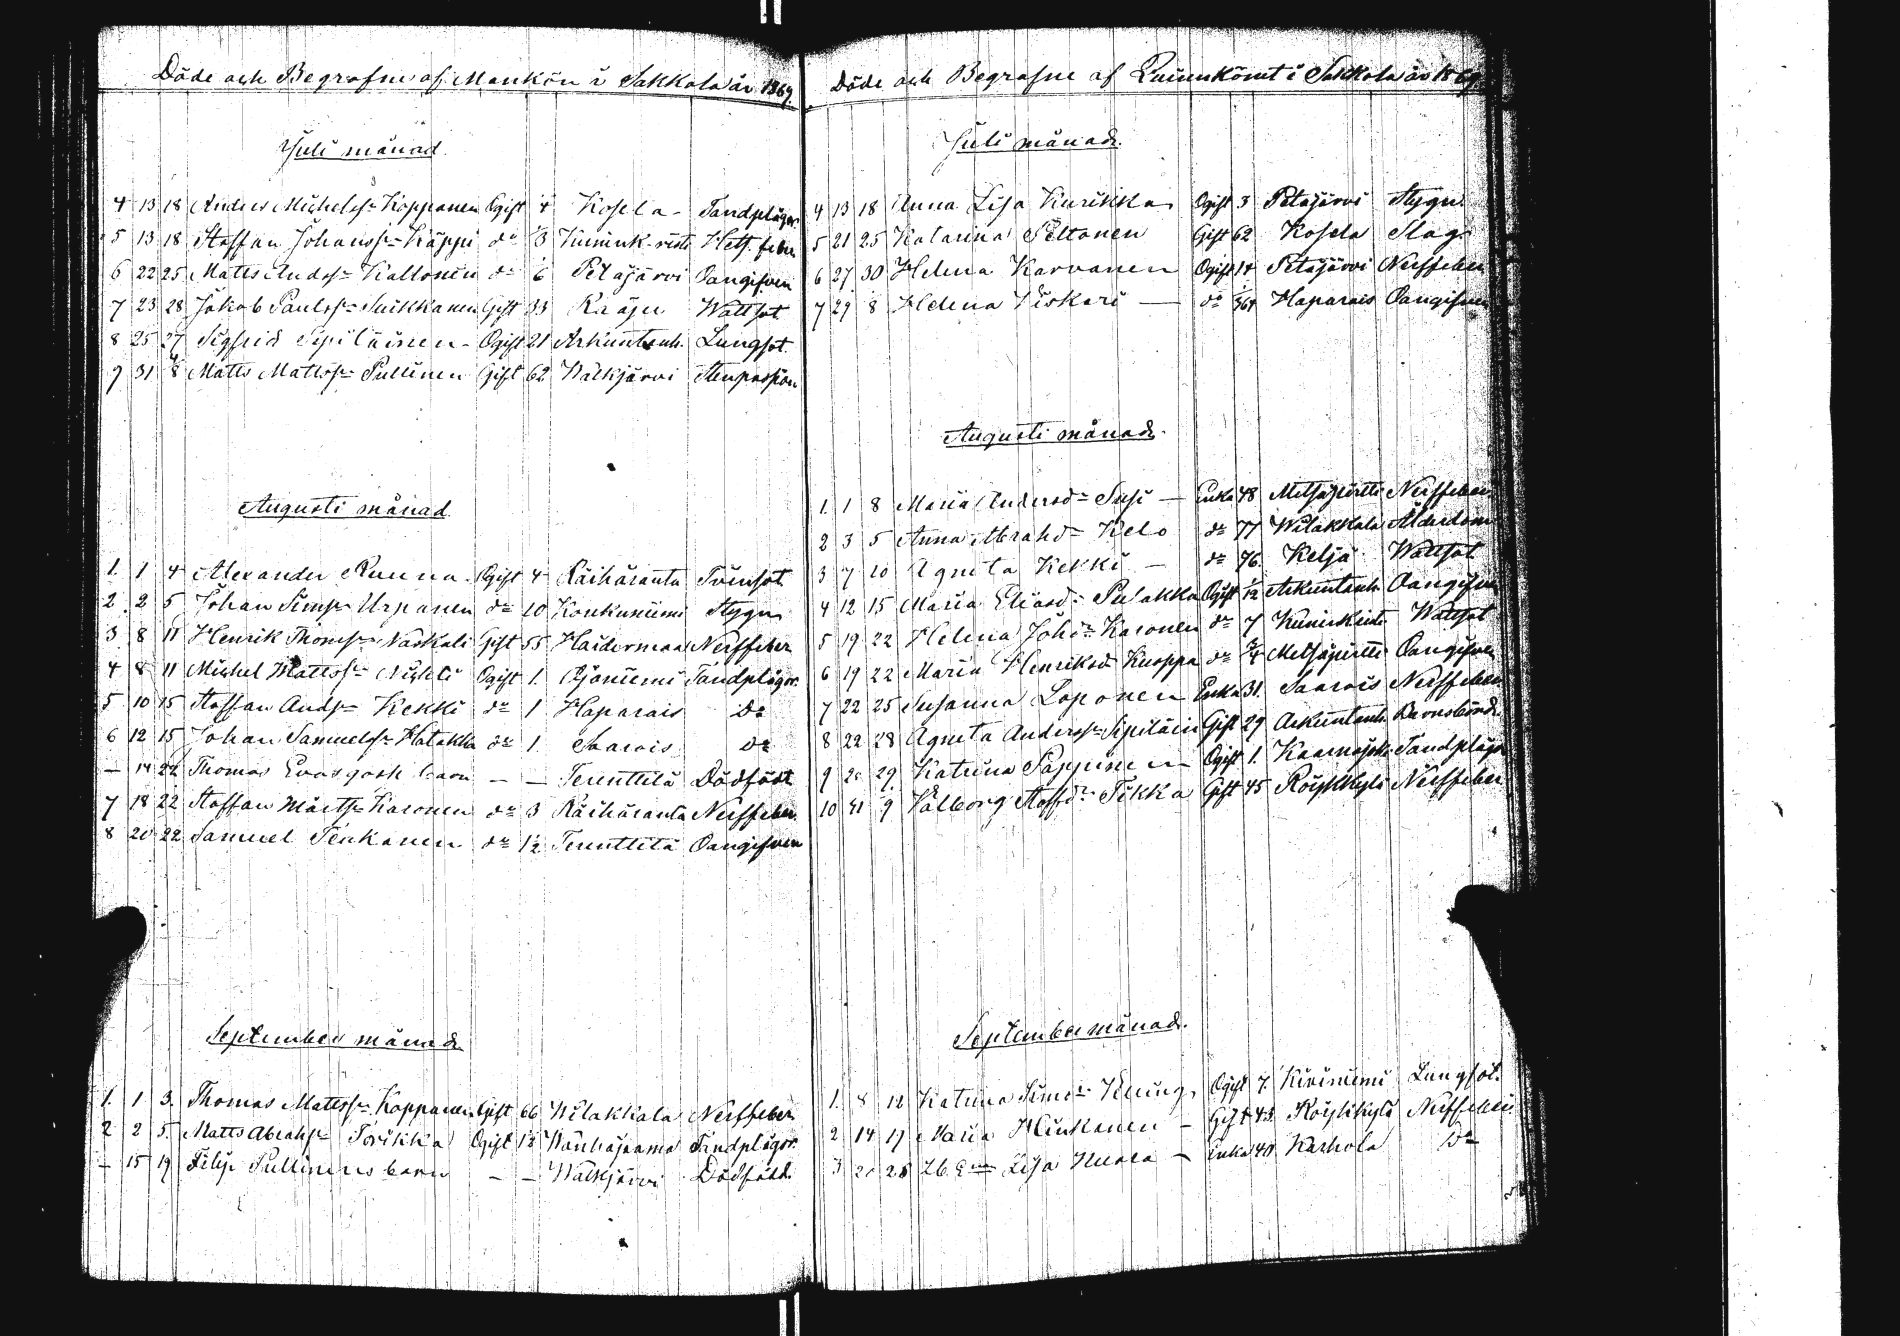 Döde och Begrafne af Mankön i Sakkola år 1869.
Juli månad
4 13 18 Anders Michelss:n Koppanen Ogift 4 Kosela Tandplågor
5 13 18 Staffan Johanss:n Käppi d:o 3 Kunink-risti Hets. feber
6 22 25 Matts Andss:n Kallonen d:o 6 Petäjärvi Oangifven
7 23 28 Jakob Paulss:n Suikkanen Gift 33 Raaju Wattsot
8 25 27 Sigfrid Sipiläinen Ogift 21 Arkuntanh. Lungsot.
9 31 8 Matts Matss:n Pullinen Gift 62 Walkjärvi Stenpassion
Augusti månad
1. 1 4 Alexander Ruuna Ogift 4 Räihäranta Tvinsot
2. 2 5 Johan Simss:n Urpanen d:o 10 Konkuniemi Stygn
3. 8 11 Henrik Thomss:n Naskali Gift 55 Haiterma Nerffeber
4 8 11 Michel Mattss:n Ogift 1. Ojäniemi Tandplågor.
5 10 15 Staffan Andss:n Kekki d:o 1 Haparais D:o
6 12 15 Johan Samuelss:n Hatakka d:o 1. Saarois d:o
— 14 22 Thomas barn — — Terenttilä Dödfödt
7 18 22 Staffan Märtss:n Karonen d:o 3 Räihäranta Nerffeber.
8 20 22 Samuel Tenkanen d:o 1½ Terenttilä Oangifven
September månad
1. 1 3. Thomas Mattss:n Koppanen Gift 66 Wilakkala Nerffeber
2 2 5. Matts Abrahss:n Torikka Ogift 1½ Wanhajaama Tandplågor.
— 15 19 Filip Pullinens barn — — Walkjärvi Dödfödd.
Döde och Begrafne af Quinnkönet i Sakkola år 1869.
Juli månad.
4 13 18 Anna Lisa Kurikka Ogift 3 Petäjärvi Stygn
5 21 25 Katarina Peltonen Gift 62 Kosela Slag
6 27 30 Helena Karvanen Ogift Petäjärvi Nerffeber
7 29 8 Helena Wiskari — d:o Haparais Oangifven
Augusti månad.
1. 1 8 Maria Andersd:r Susi — Enka 48 Metsäpirtti Nerffeber
2 3 5 Anna Abrahd:r Kelo d:o 77 Wilakkala Ålderdom
3 7 10 Agneta Kekki — d:o 76. Kelja Wattsot
4 12 15 Maria Eliasd:r Pulakka Ogift ½ Arkuntanh Oangifven
5 19 22 Helena Johd:r Karonen d:o 7 Wattsot
6 19 22 Maria Henriksd:r Kuoppa d:o ¾ Metsäpirtti Oangifven
7 22 25 Susanna Loponen Enka 31. Saarois Nerffeber
8 22 28 Agneta Anderss:n Sipiläin Gift 29 Arkuntanh. Barnsbörd.
9 20 29. Katrina Pappinen Ogift 1. Tandplågor
10 31 9 Wålborg Staffd:r Tikka Gift 45 Röykkylä Nerffeber
September månad.
1. 8 12 Katrina Simd:r Ogift 7. Kiviniemi Lungsot.
2 14 19 Maria Hinkanen — Gift 43. Röykkylä Nerffeber
3 20 26 Lisa — Enka 40 Karhola D:o